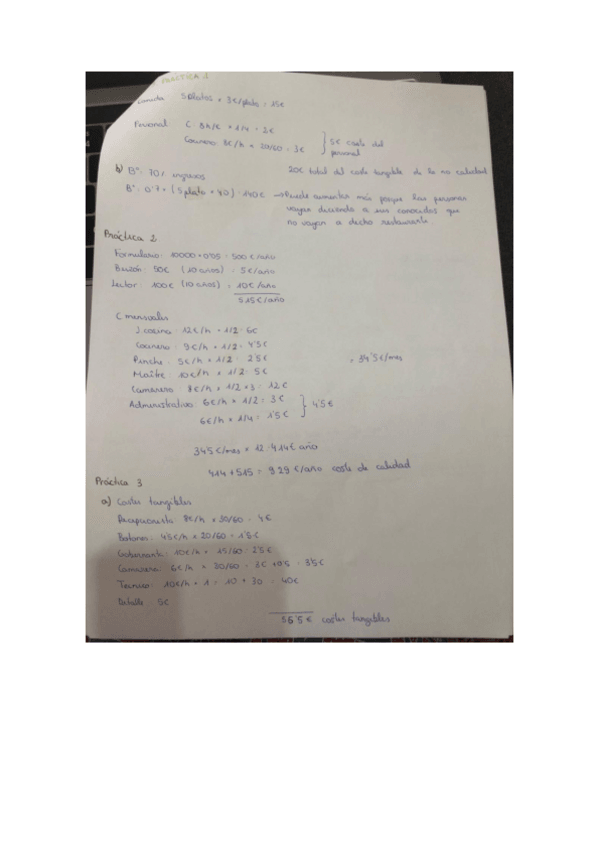 PRÁCTICA 1
Comida 5 platos x 3€/plato = 15€
Personal C 8h/€ x 1/4 = 2€
Cocinero 9€/h x 20/60 = 3€ } 5€ coste del personal
20€ total del coste tangible de la no calidad
b) Bº: 70% ingresos
Bº: 0'7 x (5 plato x 40) = 140€ → Puede aumentar más porque las personas
vayan diciendo a sus conocidos que
no vayan a dicho restaurante.
Práctica 2
Formulario: 10000 x 0'05 = 500 €/año
Buzón: 50€ (10 años) = 5€/año
Lector: 100€ (10 años) = 10€/año
515€/año
C mensuales
J. cocina: 12€/h x 1/2 = 6€
Cocinero: 9€/h x 1/2 = 4'5€
Pinche: 5€/h x 1/2 = 2'5€ = 34'5€/mes
Maître 10€/h x 1/2 = 5€
Camarero 8€/h x 1/2 x 3 = 12€
Administrativo 6€/h x 1/2 = 3€
6€/h x 1/4 = 1'5€ } 4'5€
34'5 €/mes x 12 = 414€ año
414 + 515 = 929 €/año coste de calidad
Práctica 3
a) Costes tangibles
Recepcionista: 8€/h x 30/60 = 4€
Botones: 4'5€/h x 20/60 = 1'5€
Gobernanta: 10€/h x 15/60 = 2'5€
Camarera: 6€/h x 30/60 = 3€ + 0'5 = 3'5€
Técnico: 10€/h x 1 = 10 + 30 = 40€
Detalle 5€
56'5€ costes tangibles